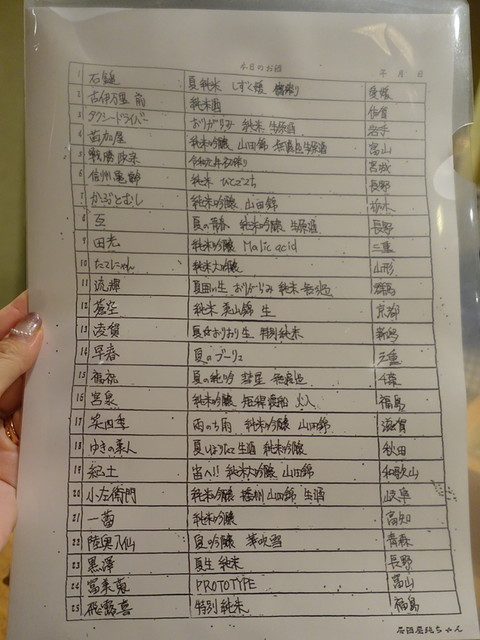 本日のお酒 年 月 日
1 石鎚 夏純米 しずく媛 槽搾り 愛媛
2 古伊万里 前 純米 佐賀
3 タクシードライバー おりがらみ 純米 生原酒 岩手
4 苗加屋 純米吟醸 山田錦 無濾過生原酒 富山
5 戦勝政宗 令和元年初搾り 宮城
6 信州亀齢 純米 ひとごこち 長野
7 かぶとむし 純米吟醸 山田錦 栃木
8 亙 夏の青春 純米吟醸 生原酒 長野
9 田光 純米吟醸 Malic acid 三重
10 たてにゃん 純米大吟醸 山形
11 流輝 夏囲い生 おりがらみ 純米 無濾過 群馬
12 蒼空 純米 美山錦 生 京都
13 湊賀 夏☆おりおり生 特別純米 新潟
14 早春 夏のブーリュ 三重
15 福祝 夏の純吟 彗星 無濾過 千葉
16 宮泉 純米吟醸 火入 福島
17 笑四季 雨のち雨 純米吟醸 山田錦 滋賀
18 ゆきの美人 夏しぼりたて 生酒 純米吟醸 秋田
19 紀土 宙へ!! 純米大吟醸 山田錦 和歌山
20 小左衛門 純米吟醸 播州山田錦 生酒 岐阜
21 一蕾 純米吟醸 高知
22 陸奥八仙 夏の吟醸 華吹雪 青森
23 黒澤 夏生 純米 長野
24 富美菊 PROTOTYPE 富山
25 飛露喜 特別純米 福島
酒田屋純ちゃん